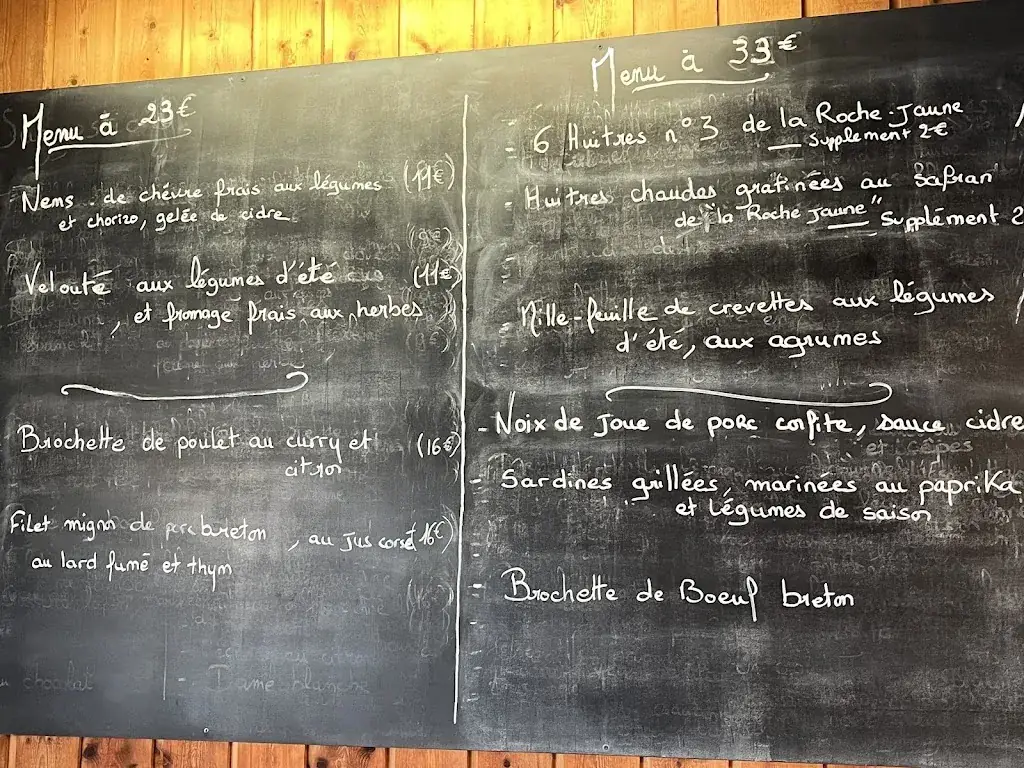 Menu à 23€
Nems de chévre frais aux légumes (11€)
et chorizo, gelée de cidre
Velouté aux légumes d'été (11€)
, et fromage frais aux herbes
Brochette de poulet au curry et (16€)
citron
Filet mignon de porc breton, au jus corsé (16€)
au lard fumé et thym
Dame blanche
Menu à 33€
- 6 Huitres n°3 de la Roche-Jaune
supplement 2€
- Huitres chaudes gratinées au safran
de "la Roche Jaune" Supplément 2
- Mille-feuille de crevettes aux légumes
d'été, aux agrumes
- Noix de joue de porc confite, sauce cidre
et cèpes
- Sardines grillées, marinées au paprika
et légumes de saison
- Brochette de Boeuf breton